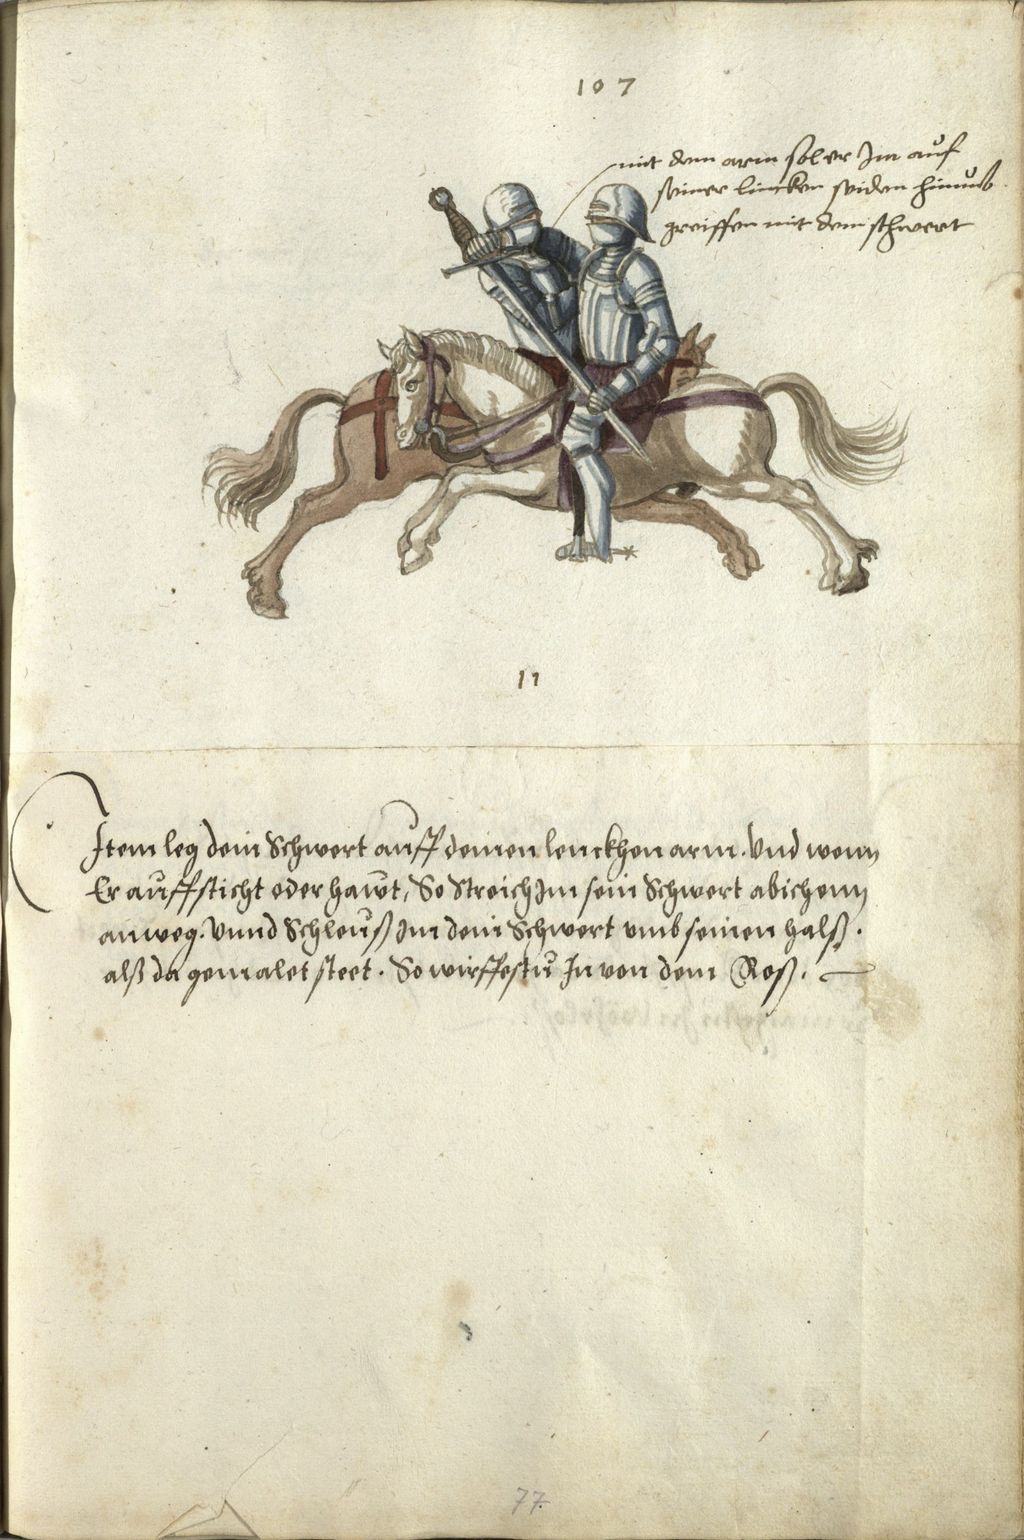 107
mit dem arm sol er Im auf
seiner lincken seiden hinum
greiffen mit dem schwert
11
Item leg dein Schwert auff deinen lenckhen arm. Vnd wenn
Er auffsticht oder hawt, So Streich Im sein Schwert abichenn
anweg. Vnnd Schleuß Im dein Schwert vmb seinen halß.
alß da gemalet steet. So wirffestu In von dem Roß.
77